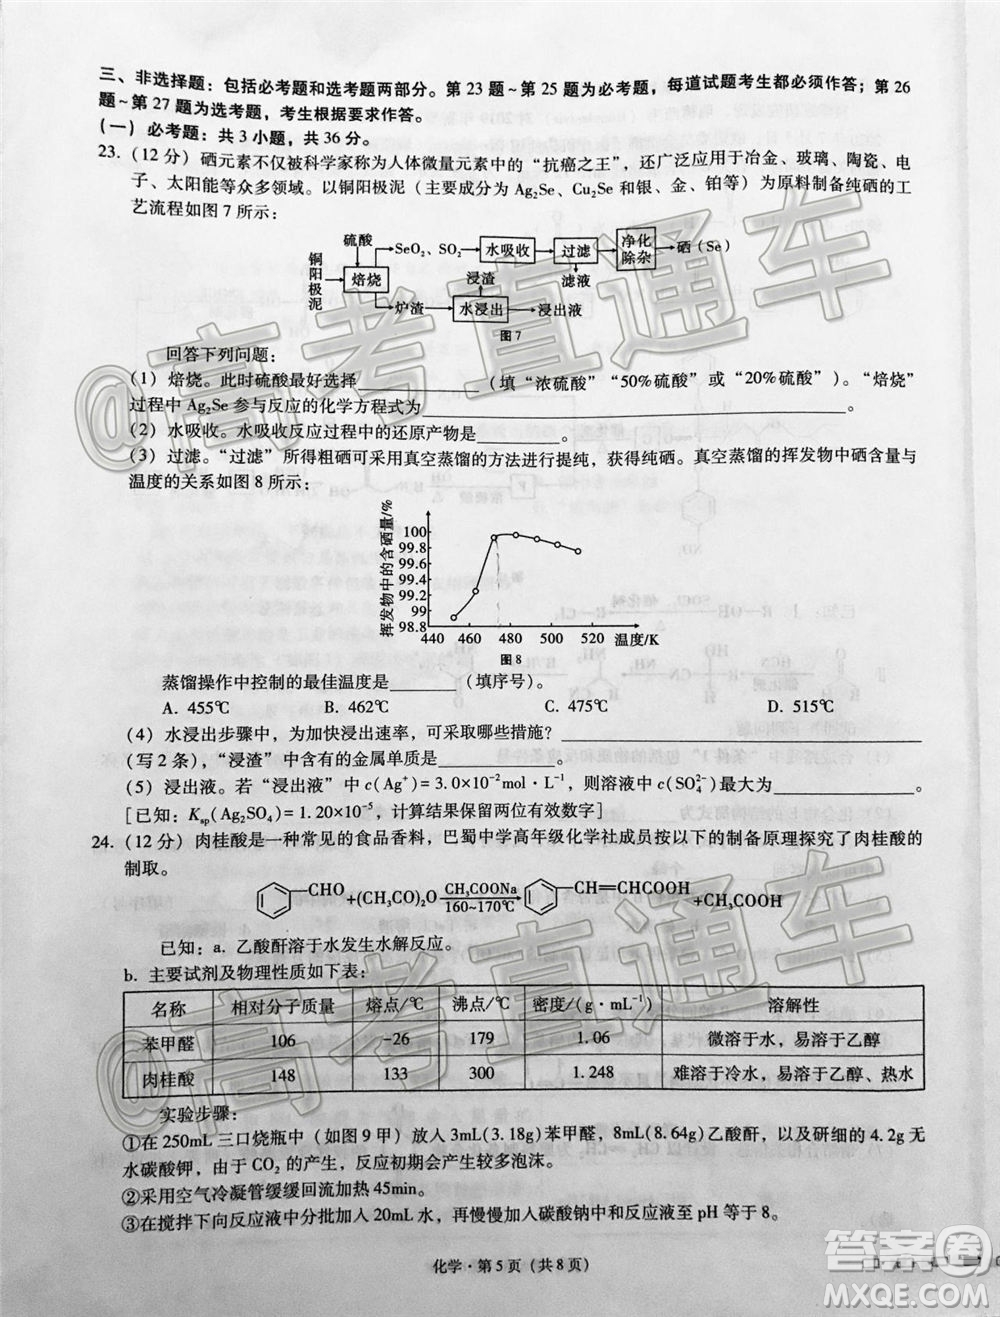 三、非选择题：包括必考题和选考题两部分。第 23 题～第 25 题为必考题，每道试题考生都必须作答；第 26
题～第 27 题为选考题，考生根据要求作答。
(一) 必考题：共 3 小题，共 36 分。
23. (12 分) 硒元素不仅被科学家称为人体微量元素中的“抗癌之王”，还广泛应用于冶金、玻璃、陶瓷、电
子、太阳能等众多领域。以铜阳极泥（主要成分为 Ag₂Se、Cu₂Se 和银、金、铂等）为原料制备纯硒的工
艺流程如图 7 所示：
硫酸 SeO₂、SO₂ 水吸收 过滤 净化除杂 硒（Se）
铜阳极泥 焙烧 浸渣 滤液
炉渣 水浸出 浸出液
图 7
回答下列问题：
(1) 焙烧。此时硫酸最好选择____________（填“浓硫酸”“50%硫酸”或“20%硫酸”）。“焙烧”
过程中 Ag₂Se 参与反应的化学方程式为____________。
(2) 水吸收。水吸收反应过程中的还原产物是________。
(3) 过滤。“过滤”所得粗硒可采用真空蒸馏的方法进行提纯，获得纯硒。真空蒸馏的挥发物中硒含量与
温度的关系如图 8 所示：
挥发物中的含硒量/%
100
99.8
99.6
99.4
99.2
99
98.8
440 460 480 500 520 温度/K
图 8
蒸馏操作中控制的最佳温度是________（填序号）。
A. 455℃ B. 462℃ C. 475℃ D. 515℃
(4) 水浸出步骤中，为加快浸出速率，可采取哪些措施？____________
(写 2 条)，“浸渣”中含有的金属是____________。
(5) 浸出液。若“浸出液”中 c(Ag⁺)=3.0×10⁻²mol·L⁻¹，则溶液中 c(SO₄²⁻)=________。
[已知：Ksp(Ag₂SO₄)=1.20×10⁻⁵，计算结果保留两位有效数字]
24. (12 分) 肉桂酸是一种常见的食品香料，巴蜀中学高年级化学社成员按以下的制备原理探究了肉桂酸的
制取。
CHO+(CH₃CO)₂O CH₃COONa 160~170℃ CH=CHCOOH+CH₃COOH
已知：a. 乙酸酐溶于水发生水解反应。
b. 主要试剂及物理性质如下表：
名称 相对分子质量 熔点/℃ 沸点/℃ 密度/(g·mL⁻¹) 溶解性
苯甲醛 106 -26 179 1.06 微溶于水，易溶于乙醇
肉桂酸 148 133 300 1.248 难溶于冷水，易溶于乙醇、热水
实验步骤：
①在 250mL 三口烧瓶中（如图 9 甲）放入 3mL(3.18g)苯甲醛，8mL(8.64g)乙酸酐，以及研细的 4.2g无
水碳酸钾，由于 CO₂ 的产生，反应初期会产生较多泡沫。
②采用空气冷凝管缓缓回流加热 45min。
③在搅拌下向反应液中分批加入 20mL 水，再慢慢加入碳酸钠中和反应液至 pH 等于 8。
化学·第 5 页（共 8 页）
@高考直通车
@高考直通车
答案圈
MXQE.COM